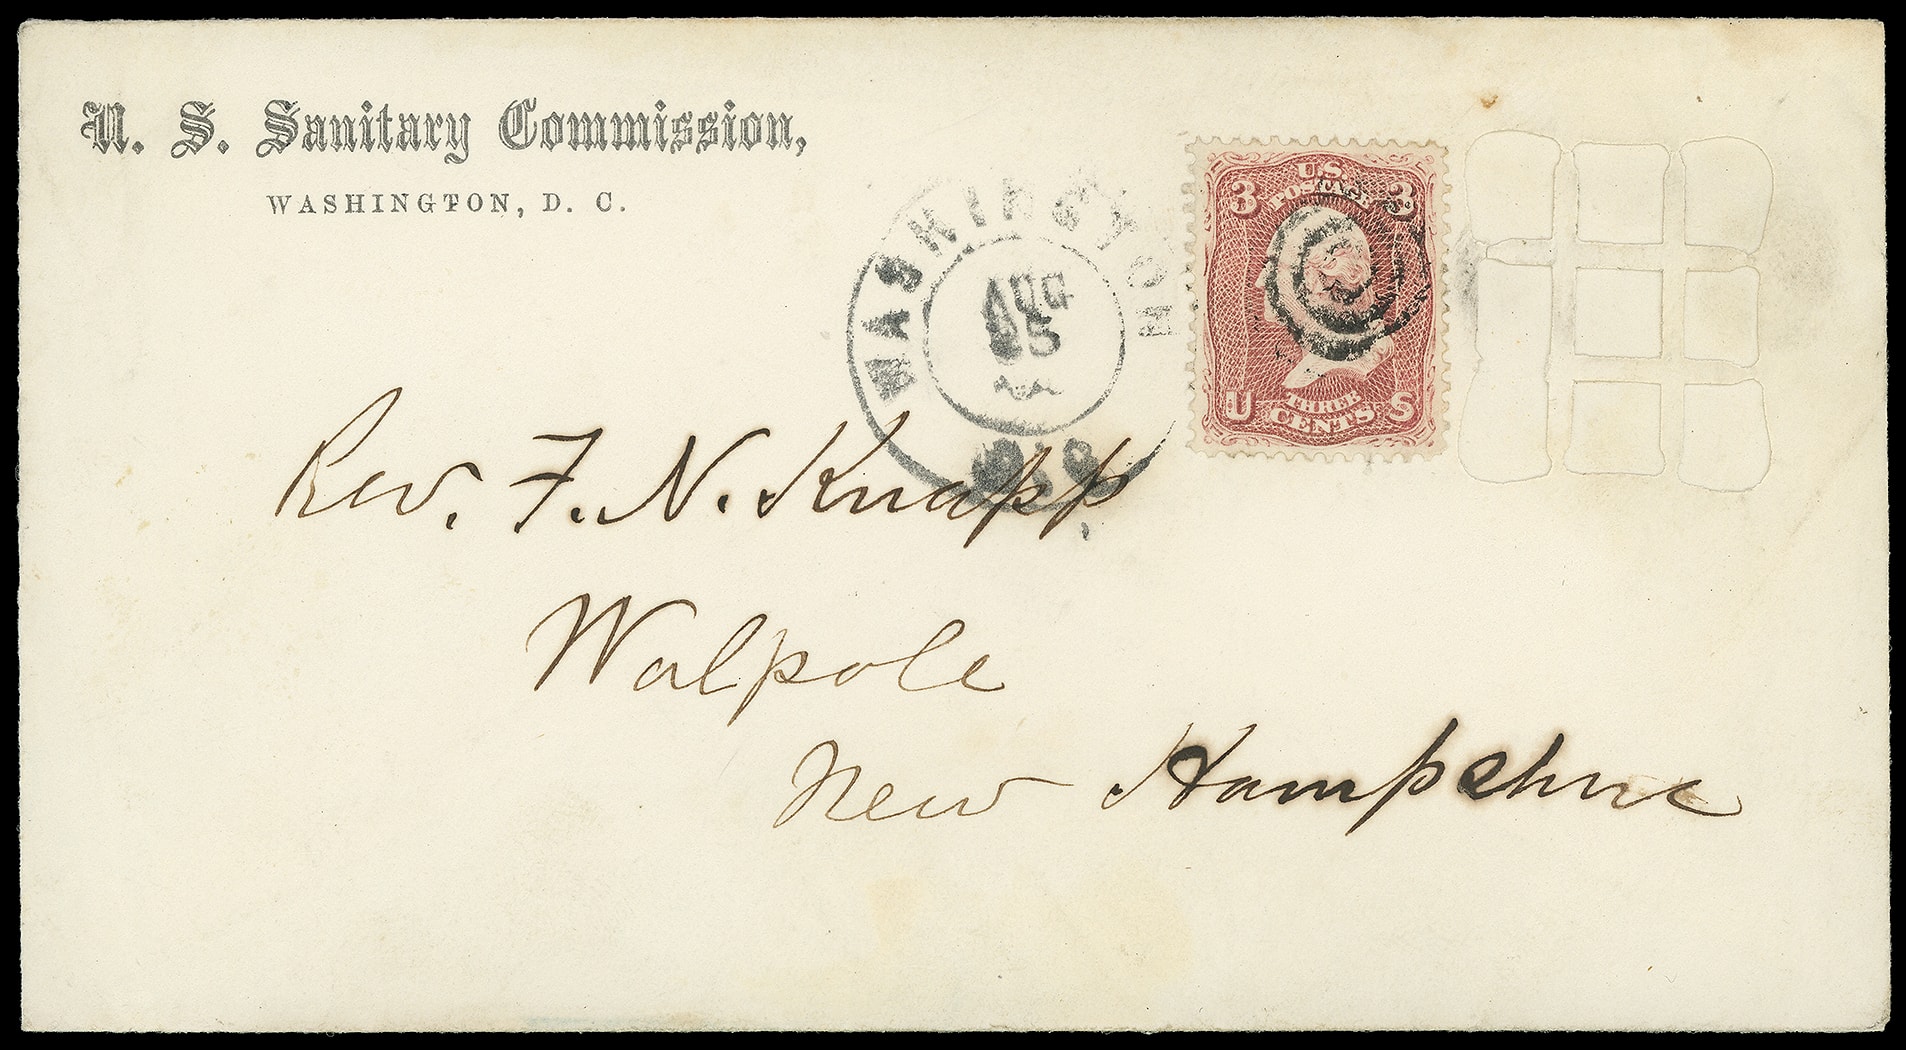 U. S. Sanitary Commission,
WASHINGTON, D. C.
WASHINGTON
AUG
3 U.S. 3
POSTAGE
THREE
U CENTS S
Rev. F. N. Knapp,
Walpole
New Hampshire